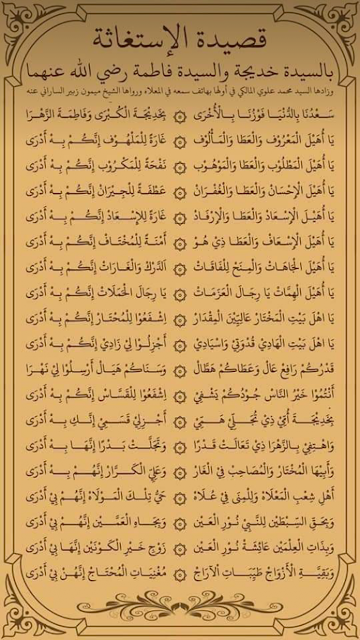 قصيدة الإستغاثة
بالسيدة خديجة والسيدة فاطمة رضي الله عنهما
وزادها السيد محمد علوي المالكي في أولها بهاتف سمعه في المعلاه ورواها الشيخ ميمون زبير الساراني عنه
سَعْدُنَا بِالدُّنْيَا فَوْزُنَا بِالْأُخْرَى ۞ بِخَدِيْجَةَ الْكُبْرَى وَفَاطِمَةَ الزَّهْرَا
يَا أُهَيْلَ الْمَعْرُوْفِ وَالْعَطَا وَالْمَأْلُوْفِ ۞ غَارَةً لِلْمَلْهُوْفِ إِنَّكُمْ بِهْ أَدْرَى
يَا أُهَيْلَ الْمَطْلُوْبِ وَالْعَطَا وَالْمَوْهُوْبِ ۞ نَفْحَةً لِلْمَكْرُوْبِ إِنَّكُمْ بِهْ أَدْرَى
يَا أُهَيْلَ الْإِحْسَانِ وَالْعَطَا وَالْغُفْرَانِ ۞ عَطْفَةً لِلْجِيْرَانِ إِنَّكُمْ بِهْ أَدْرَى
يَا أُهَيْلَ الْإِسْعَادِ وَالْعَطَا وَالْإِرْفَادِ ۞ غَارَةً لِلْإِسْعَادِ إِنَّكُمْ بِهْ أَدْرَى
يَا أُهَيْلَ الْإِسْعَافِ وَالْعَطَا ذِي هُوْ ۞ أَمْنَةً لِلْمُخْتَافِ إِنَّكُمْ بِهْ أَدْرَى
يَا أُهَيْلَ الْجَاهَاتْ وَالْمِنَحْ لِلْفَاقَاتْ ۞ اَلدَّرَكْ وَالْغَارَاتْ إِنَّكُمْ بِهْ أَدْرَى
يَا أُهَيْلَ الْهِمَّاتْ يَا رِجَالَ الْعَزَمَاتْ ۞ يَا رِجَالَ الْحَمَلَاتْ إِنَّكُمْ بِهْ أَدْرَى
يَا اهْلَ بَيْتِ الْمُخْتَارْ عَالِيِيْنَ الْمِقْدَارْ ۞ اِشْفَعُوْا لِلْمُحْتَارْ إِنَّكُمْ بِهْ أَدْرَى
يَا اهْلَ بَيْتِ الْهَادِيْ قُدْوَتِيْ وَاسْيَادِيْ ۞ أَجْزِلُوْا لِيْ زَادِيْ إِنَّكُمْ بِهْ أَدْرَى
قَدْرُكُمْ رَافِعْ عَالْ وَعَطَاكُمْ هَطَّالْ ۞ وَسَنَاكُمْ هَيَالْ أَرْسِلُوْا لِيْ نَهْرَا
أَنْتُمُوْا خَيْرُ النَّاسْ جُوْدُكُمْ يَشْفِيْ ۞ اِشْفَعُوْا لِلْقَسَّاسْ إِنَّكُمْ بِهْ أَدْرَى
بِخَدِيْجَةْ أُمِّيْ ذِيْ تُجَلِّيْ هَمِّيْ ۞ أَجْزِلِيْ قَسَمِيْ إِنَّكِ بِهْ أَدْرَى
وَاهْتِفِيْ بِالزَّهْرَا ذِيْ تَعَالَتْ قَدْرًا ۞ وَتَجَلَّتْ بَدْرًا إِنَّهَا بِهْ أَدْرَى
وَأَبِيْهَا الْمُخْتَارْ وَالْمُصَاحِبْ فِي الْغَارْ ۞ وَعَلِيِّ الْكَرَّارْ إِنَّهُمْ بِهْ أَدْرَى
أَهْلِ شِعْبِ الْمَعْلَاهْ وَلِلْمِنَى فِيْ عُلَاهْ ۞ حَيِّ تِلْكَ الْمَوْلَاهْ إِنَّهُمْ بِيْ أَدْرَى
وَبِحَقِّ السِّبْطَيْنْ لِلنَّبِيْ نُوْرِ الْعَيْنْ ۞ وَبِجَاهِ الْعَمَّيْنْ إِنَّهُمْ بِيْ أَدْرَى
وَبِذَاتِ الْعِلْمَيْنْ عَائِشَةْ نُوْرِ الْعَيْنْ ۞ زَوْجِ خَيْرِ الْكَوْنَيْنْ إِنَّهَا بِيْ أَدْرَى
وَبَقِيَّةِ الْأَزْوَاجْ طَيِّبَاتِ الْآرَاجْ ۞ مُغْنِيَاتِ الْمُحْتَاجْ إِنَّهُنَّ بِيْ أَدْرَى